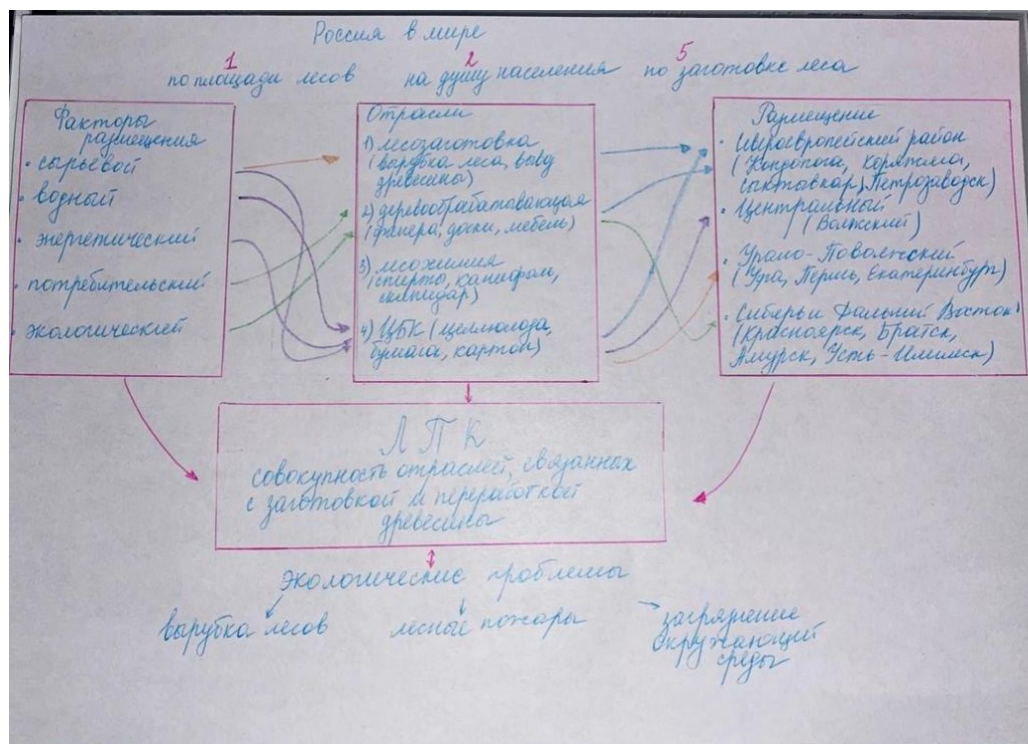 Россия в мире
1 2 5
по площади лесов на душу населения по заготовке леса
Факторы
размещения
• сырьевой
• водный
• энергетический
• потребительский
• экологический
Отрасли
1) лесозаготовка
(вырубка леса, вывоз
древесины)
2) деревообрабатовающая
(фанера, доски, мебель)
3) лесохимия
(спирты, канифоль,
скипидар)
4) ЦБК (целлюлоза,
бумага, картон)
Размещение
• Североевропейский район
(Кондопога, Коряжма,
Сыктывкар, Петрозаводск)
• Центральный
(Волжский)
• Урало-Поволжский
(Уфа, Пермь, Екатеринбург)
• Сибирь и Дальний Восток
(Красноярск, Братск,
Амурск, Усть-Илимск)
ЛПК
совокупность отраслей, связанных
с заготовкой и переработкой
древесины
экологические проблемы
вырубка лесов лесные пожары загрязнение
окружающий
среды